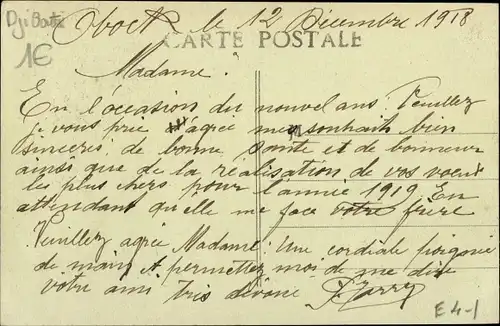 Djibouti
1€
Obock le 12 Décembre 1918
CARTE POSTALE
Madame.
En l'occasion du nouvel ans. Veuillez
je vous prie agrée mes souhait bien
sinceres de bonne santé et de bonneur
ainsi que de la réalisation de vos voeux
les plus chers pour l'année 1919 En
attendant qu'elle me face votre frère
Veuillez agrée Madame. Une cordiale poignié
de main et permettez moi de me dire
votre ami très dévoué
E4-1